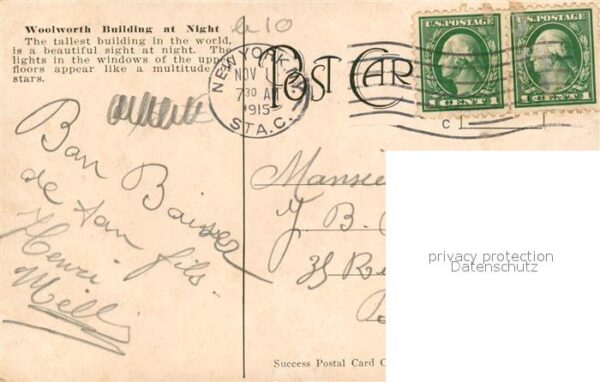 Woolworth Building at Night
The tallest building in the world,
is a beautiful sight at night. The
lights in the windows of the upper
floors appear like a multitude
stars.
a 10
NEW YORK, N.Y.
NOV
7 30 AM
1915
STA. C.
POST CAR
U.S. POSTAGE
1 CENT 1
U.S. POSTAGE
1 CENT 1
C
Bon Baiser
de ton fils
Henri
Mansie
J B
35 R
privacy protection
Datenschutz
Success Postal Card C